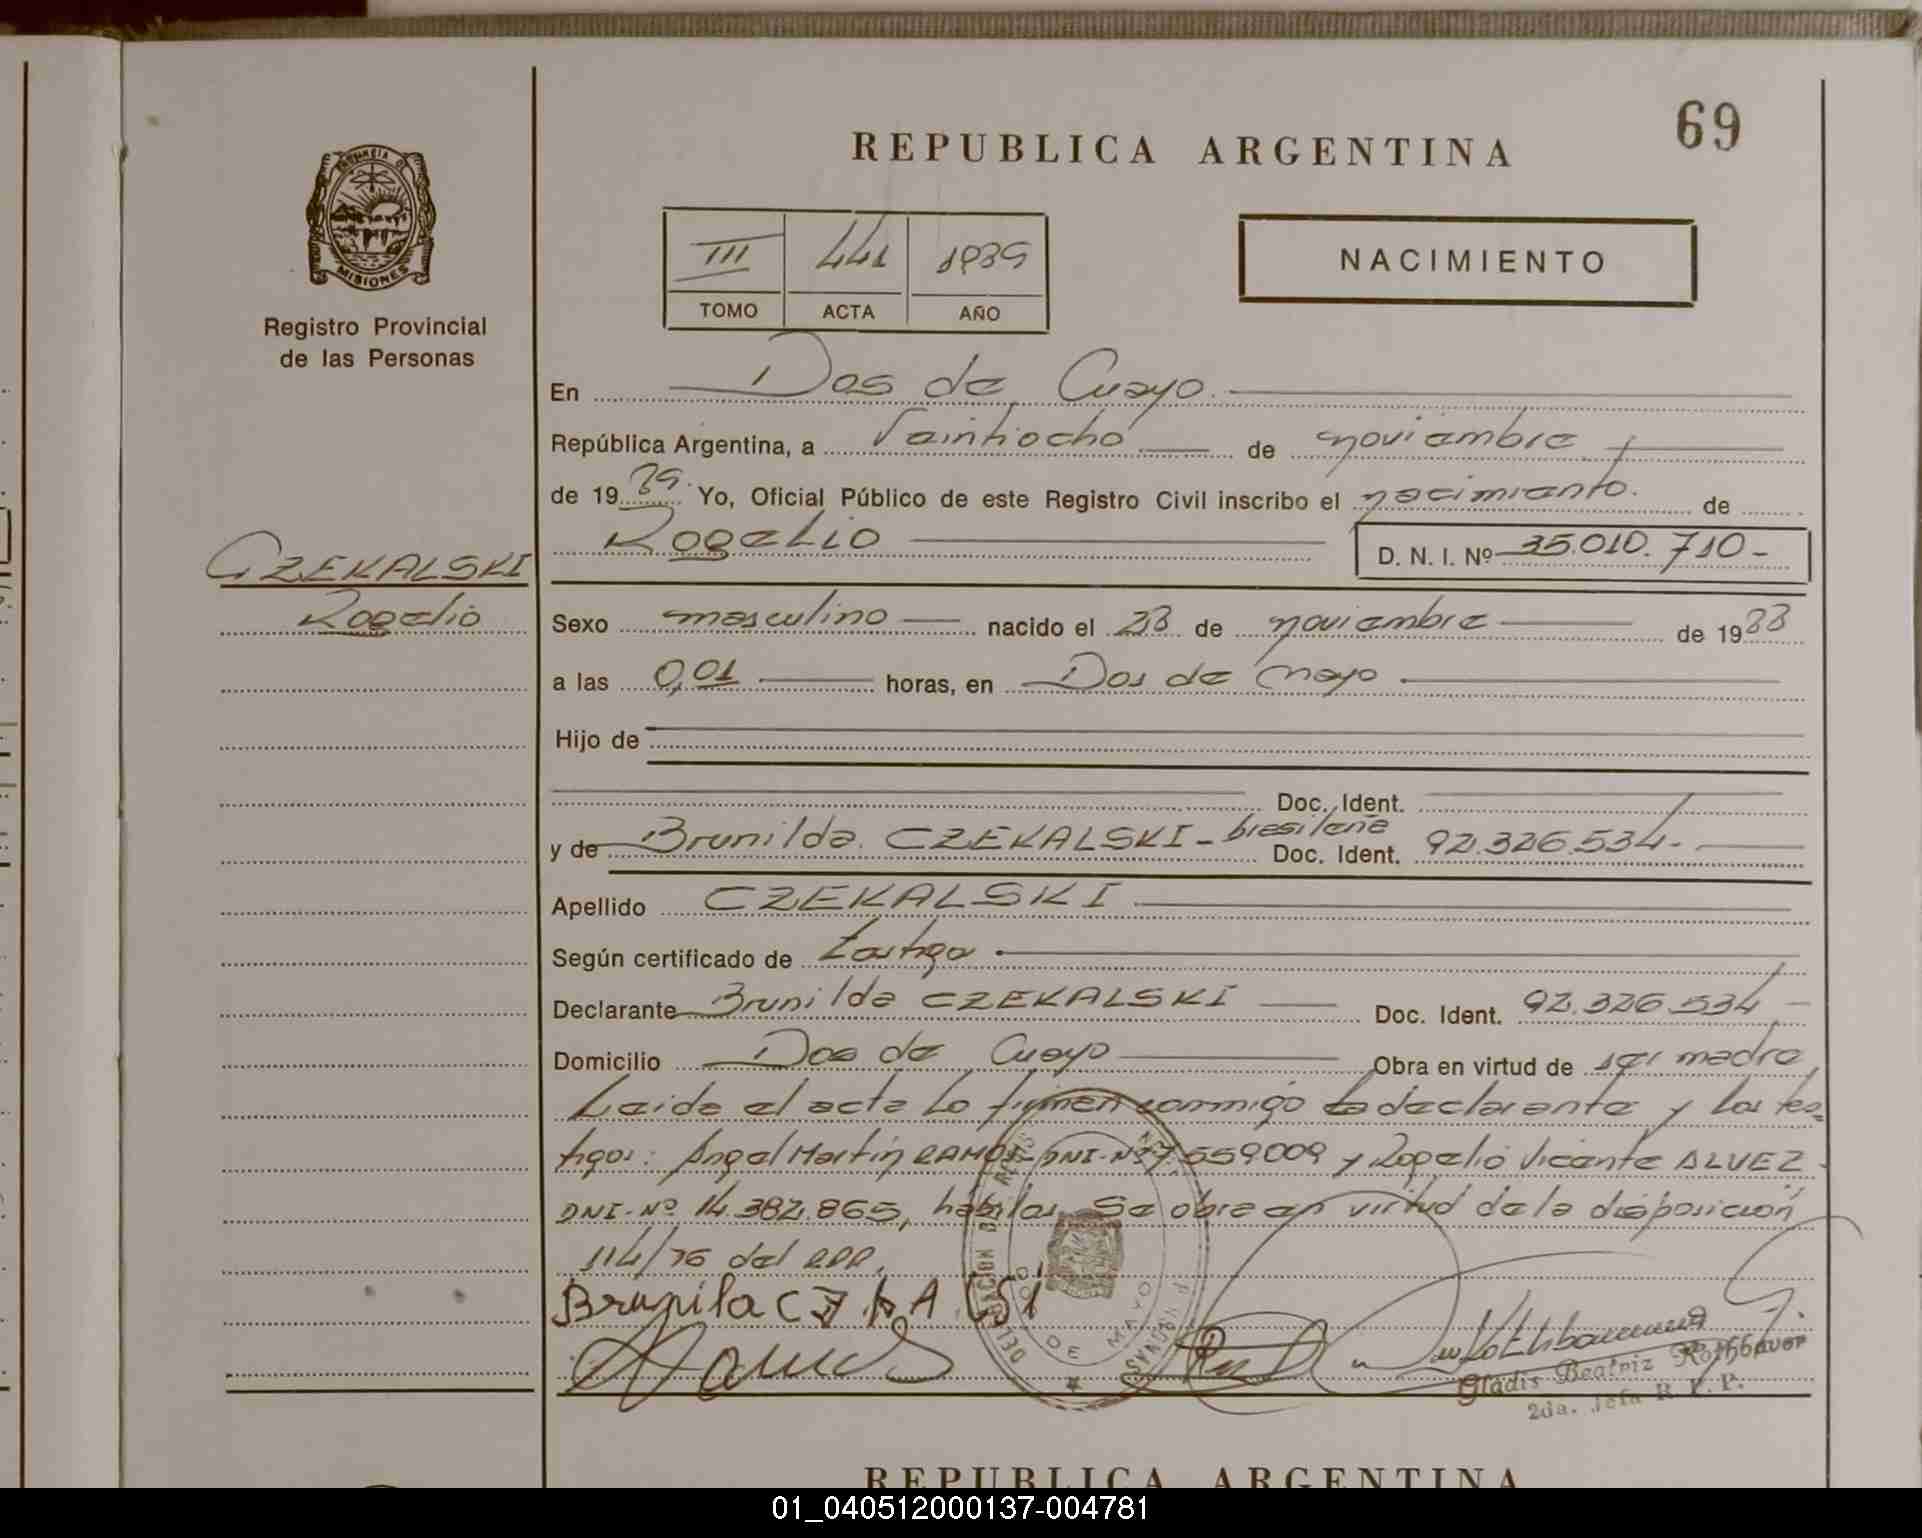 69
REPUBLICA ARGENTINA
PROVINCIA DE
MISIONES
Registro Provincial
de las Personas
III 441 1989
TOMO ACTA AÑO
NACIMIENTO
En Dos de Mayo.
República Argentina, a Veintiocho de noviembre
de 19 89. Yo, Oficial Público de este Registro Civil inscribo el nacimiento. de
Rogelio D. N. I. Nº 35.010.710-
CZEKALSKI
Rogelio
Sexo masculino nacido el 28 de noviembre de 19 88
a las 0,01 horas, en Dos de Mayo
Hijo de
Doc. Ident.
y de Brunilda CZEKALSKI - brasileña Doc. Ident. 92.326.534-
Apellido CZEKALSKI
Según certificado de testigo
Declarante Brunilda CZEKALSKI Doc. Ident. 92.326.534
Domicilio Dos de Mayo Obra en virtud de ser madre
Leida el acta lo firman conmigo la declarante y los tes=
tigos: Angel Martín RAMOS - DNI-Nº 7.559009 y Rogelio Vicente ALVEZ-
DNI-Nº 14.382.865, hábiles. Se obra en virtud de la disposición
114/76 del RPP.
DOS DE MAYO
Gladis Beatriz Rothbauer
2da. Jefa R. P. P.
REPUBLICA ARGENTINA
01_040512000137-004781